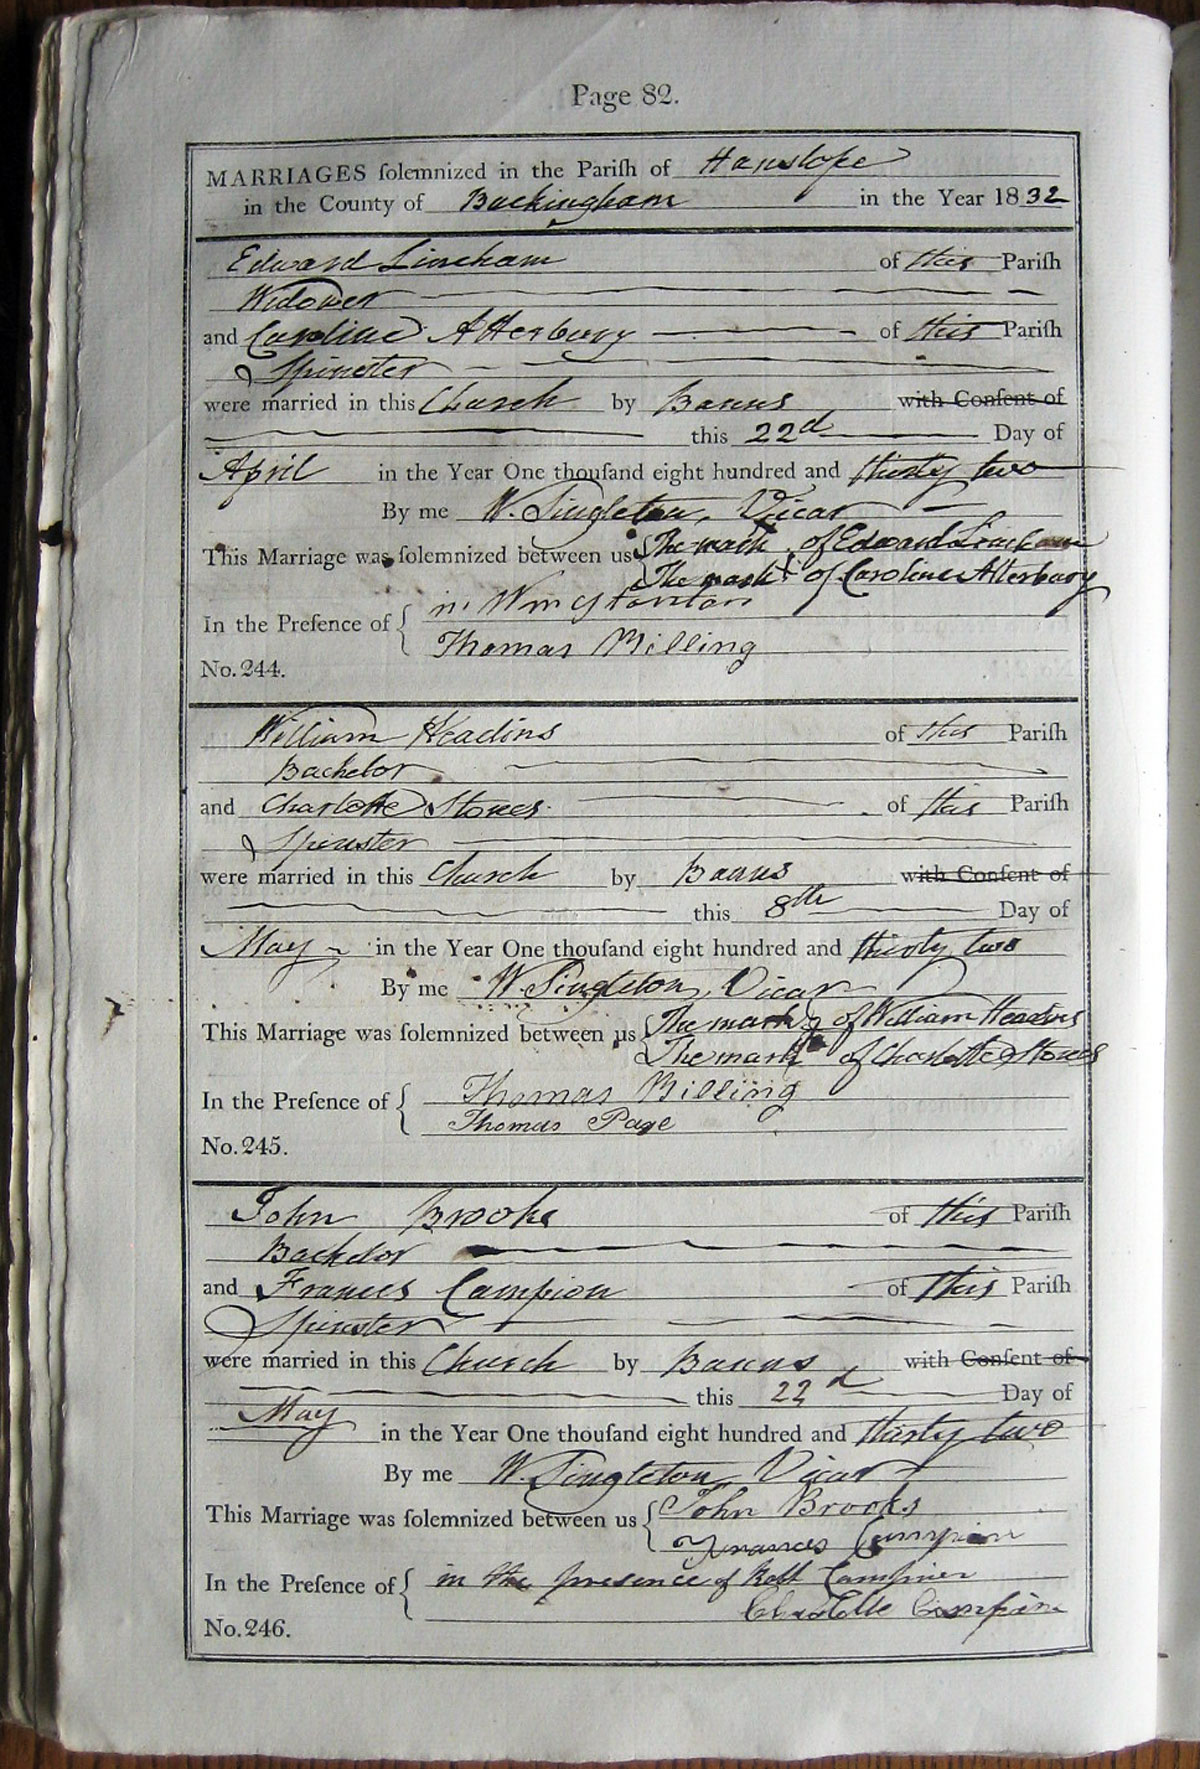 Page 82.
MARRIAGES ſolemnized in the Pariſh of Hanslope
in the County of Buckingham in the Year 1832
Edward Lineham of this Pariſh
Widower
and Caroline Atterbury of this Pariſh
Spinster
were married in this Church by Banns with Conſent of
this 22d Day of
April in the Year One thouſand eight hundred and thirty two
By me W. Singleton, Vicar
This Marriage was ſolemnized between us The mark of Edward Lineham
The mark X of Caroline Atterbury
In the Preſence of Wm Stanton
Thomas Billing
No. 244.
William Headins of this Pariſh
Bachelor
and Charlotte Stones of this Pariſh
Spinster
were married in this Church by Banns with Conſent of
this 8th Day of
May in the Year One thouſand eight hundred and thirty two
By me W. Singleton, Vicar
This Marriage was ſolemnized between us The mark of William Headins
The mark of Charlotte Stones
In the Preſence of Thomas Billing
Thomas Page
No. 245.
John Brooks of this Pariſh
Bachelor
and Frances Campion of this Pariſh
Spinster
were married in this Church by Banns with Conſent of
this 22d Day of
May in the Year One thouſand eight hundred and thirty two
By me W. Singleton, Vicar
This Marriage was ſolemnized between us John Brooks
Frances Campion
In the Preſence of in the presence of Robt Campion
Charlotte Campion
No. 246.